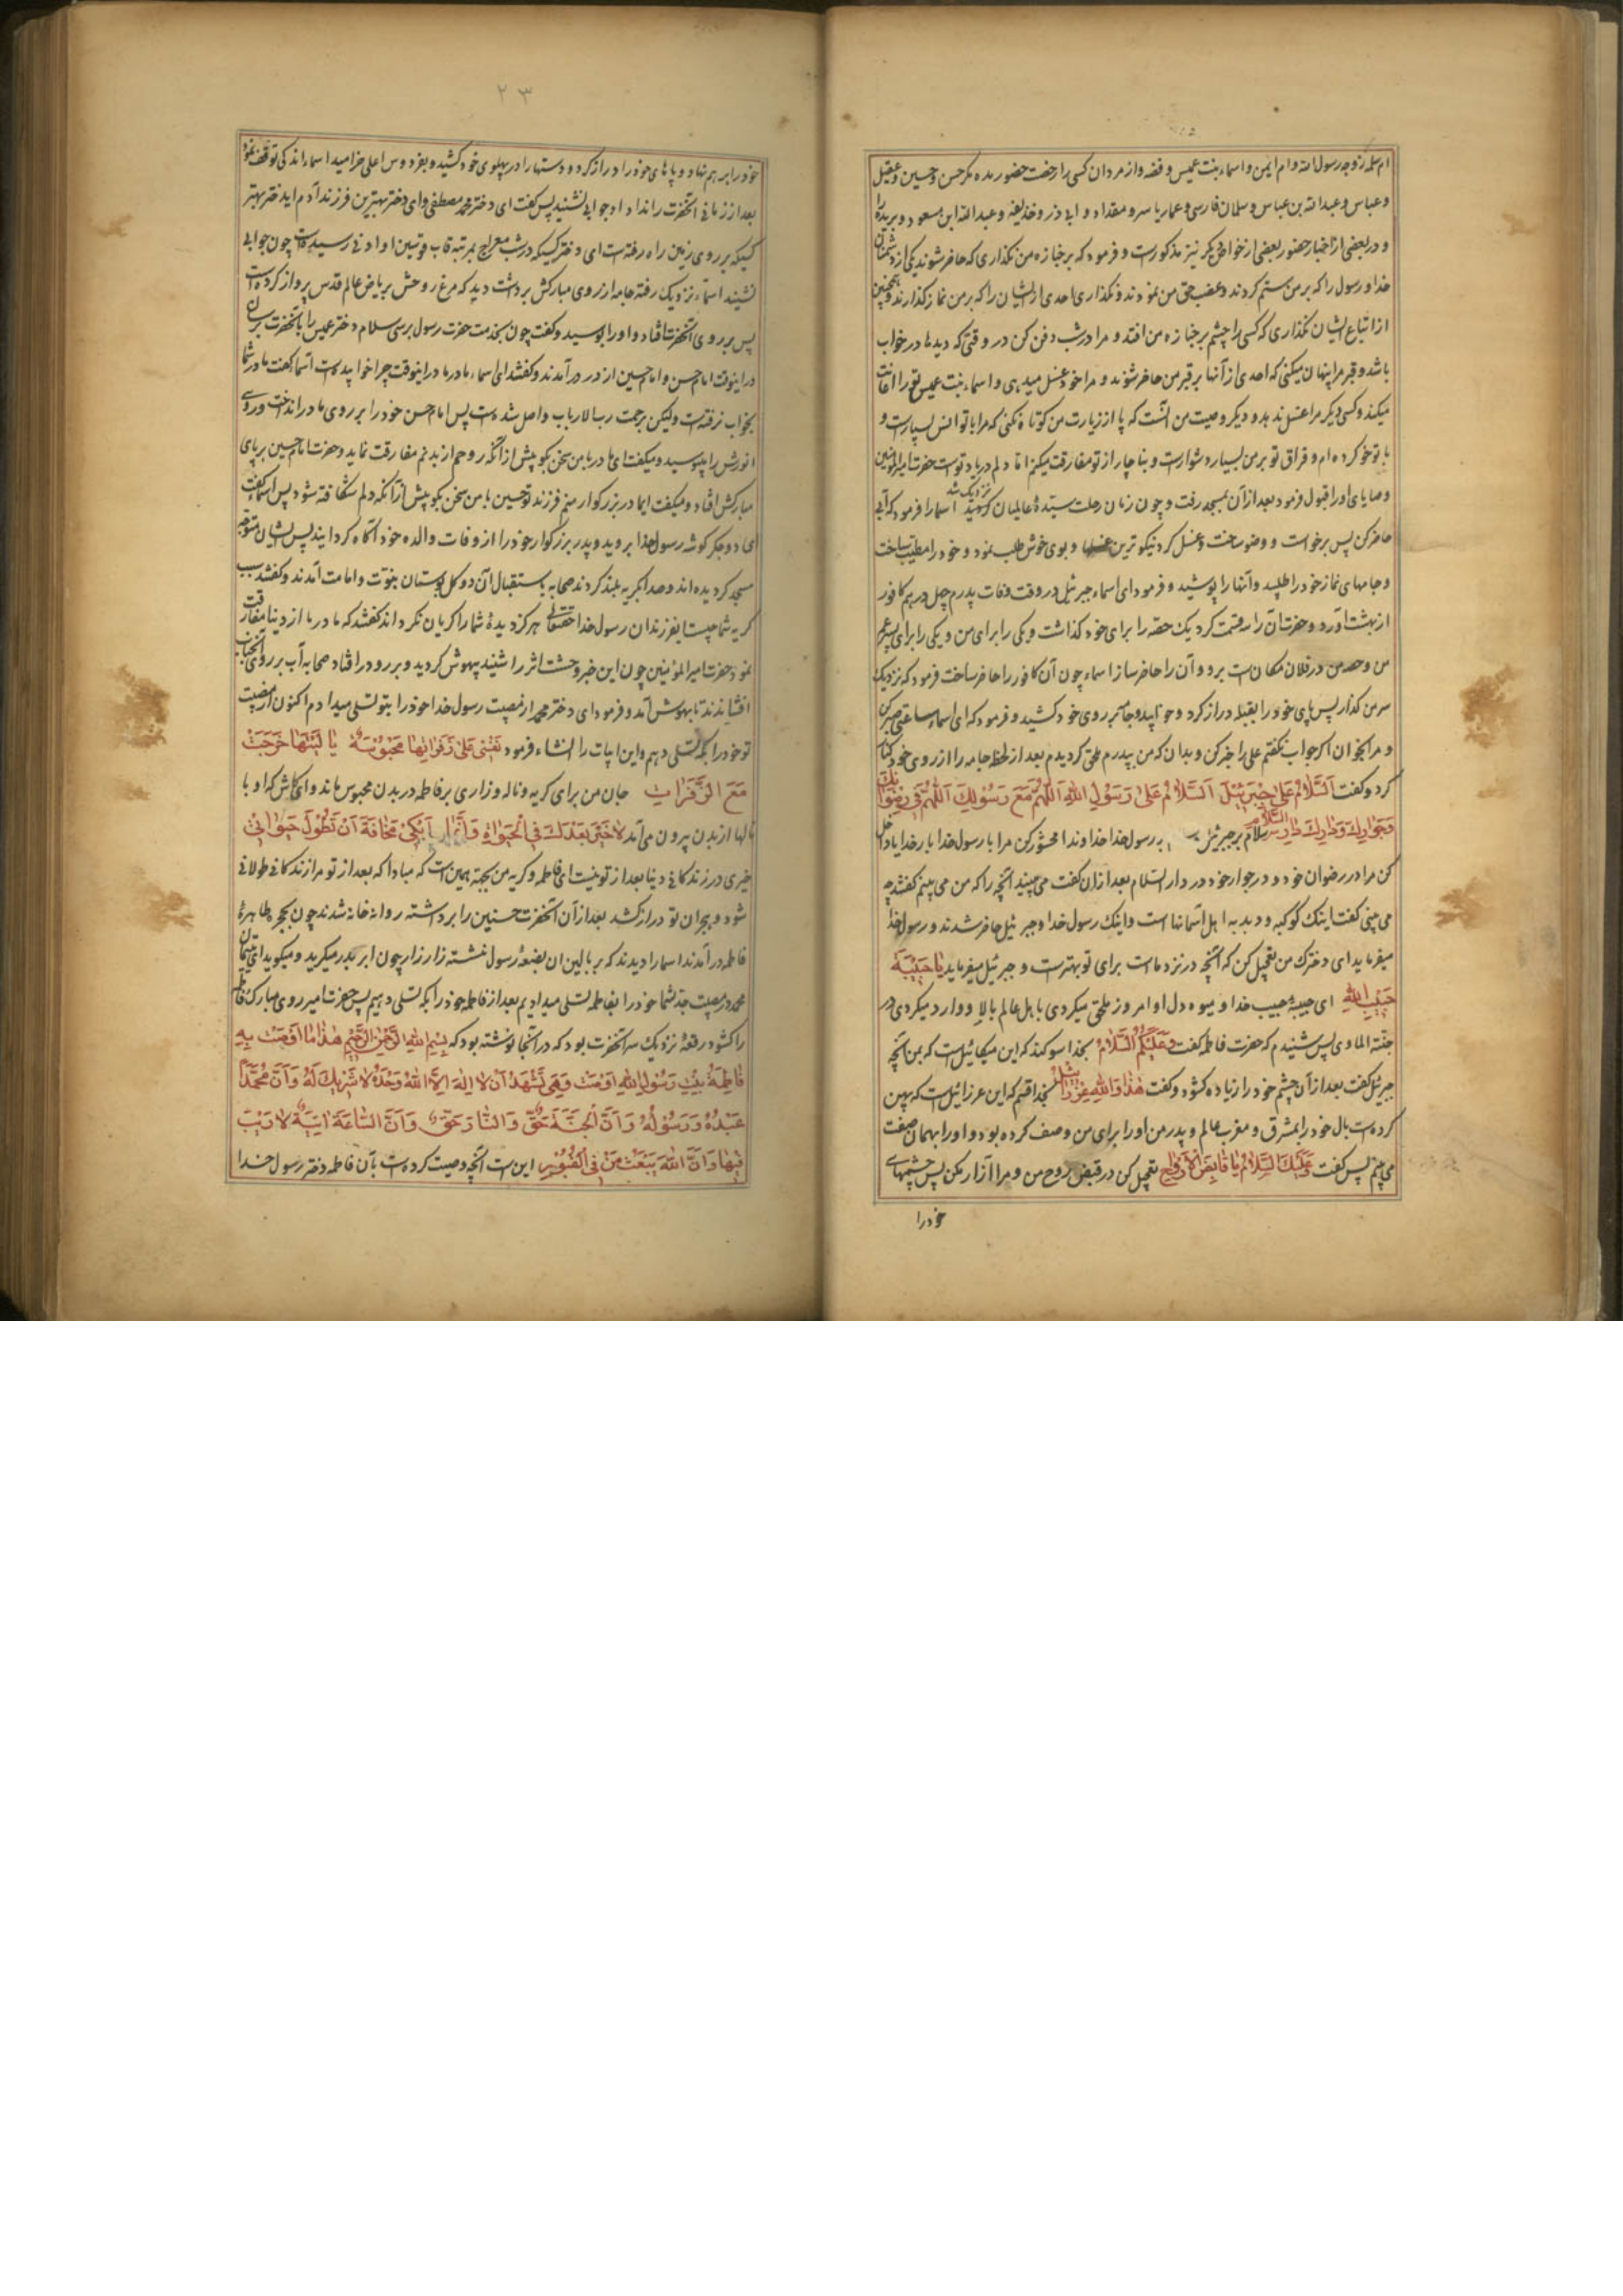 ام سلمه زوجه رسول الله و ام ایمن و اسماء بنت عمیس و فضه و از مردان کسی را رخصت حضور مده مگر حسن و حسین و عقیل
و عباس و عبدالله بن عباس و سلمان فارسی و عمار یاسر و مقداد و ابی ذر و حذیفه و عبدالله ابن مسعود و بریده را
و در بعضی از اخبار حضور بعضی از خواص دیگر نیز مذکورست و فرمود که بر جنازه من نگذاری که حاضر شوند یکی از دشمنان
خدا و رسول را که بر من ستم کردند و غصب حق من نمودند و نگذاری احدی از ایشان را که بر من نماز گذارند و همچنین
از اتباع ایشان نگذاری که کسی را چشم بر جنازه من افتد و مرا در شب دفن کن در وقتی که دیدها در خواب
باشد و قبر مرا پنهان میکنی که احدی از آنها بر قبر من حاضر نشوند و مرا خود غسل میدهی و اسماء بنت عمیس تو را اعانت
میکند و کسی دیگر مرا غسل ندهد و دیگر وصیت من آنست که پا از زیارت من کوتاه نکنی که مرا با تو انس بسیارست و
با تو خو کرده ام و فراق تو بر من بسیار دشوارست و بناچار از تو مفارقت میکنم اما دلم در یاد توست حضرت امیرالمؤمنین
وصایای او را قبول فرمود بعد از آن بمسجد رفت و چون زمان رحلت سیدهٔ عالمیان نزدیک شد اسما را فرمود که آبی
حاضر کن پس برخواست و وضو ساخت و غسل کرد نیکوترین غسلها و بوی خوش طلب نمود و خود را مطیب ساخت
و جامهای نماز خود را طلبید و آنها را پوشید و فرمود ای اسماء جبرئیل در وقت وفات پدرم چهل درهم کافور
از بهشت آورد و حضرت آن را سه قسمت کرد یک حصه را برای خود گذاشت و یکی را برای من و یکی را برای پسر عم
من و حصه من در فلان مکان است برو و آن را حاضر ساز اسماء چون آن کافور را حاضر ساخت فرمود که نزدیک
سر من گذار پس پای خود را بقبله دراز کرد و خوابید و جامه بر روی خود کشید و فرمود که ای اسماء ساعتی صبر کن
و مرا بخوان اگر جواب نگفتم علی را خبر کن و بدان که من بپدرم ملحق گردیدم بعد از لحظه جامه را از روی خود کنار
کرد و گفت اَلسَّلامُ عَلی جِبرَئیلَ اَلسَّلامُ عَلی رَسُولِ اللهِ اَللّهُمَّ مَعَ رَسُولِكَ اَللّهُمَّ فی رِضوانِكَ
وَجِوارِكَ وَدارِكَ دارِ السَّلامِ سلام بر جبرئیل بر رسول خدا خداوندا محشور کن مرا با رسول خدا بار خدایا داخل
کن مرا در رضوان خود و در جوار خود در دار السلام بعد از آن گفت می بینید آنچه را که من می بینم گفتند چه
می بینی گفت اینک کوکبه و دبدبه اهل آسمانها است و اینک رسول خدا و جبرئیل حاضر شدند و رسول خدا
میفرماید ای دخترک من تعجیل کن که آنچه در نزد ما است برای تو بهترست و جبرئیل میفرماید یا حَبیبَةَ
حَبیبِ اللهِ ای حبیبهٔ حبیب خدا و میوه دل او امروز ملحق میگردی با اهل عالم بالا و وارد میگردی در
جنة الماوی پس شنیدم که حضرت فاطمه گفت وَعَلَیكُمُ السَّلامُ بخدا سوگند که این میکائیل است که بمن آنچه
جبرئیل گفت بعد از آن چشم خود را زیاده گشود و گفت هذا وَاللهِ عِزرائیلُ بخدا قسم که این عزرائیل است که پهن
کرده است بال خود را بمشرق و مغرب عالم و پدر من او را برای من وصف کرده بود و او را بهمان صفت
می بینم پس گفت وَعَلَیكَ السَّلامُ یا قابِضَ الأَرواحِ تعجیل کن در قبض روح من و مرا آزار مکن پس چشمهای
خود را
۲۳
خود را بر هم نهاد و پاهای خود را دراز کرد و دستها را در پهلوی خود کشید و بفردوس اعلی خرامید اسماء اندکی توقف نمود
بعد از زمانی آنحضرت را ندا داد جوابی نشنید پس گفت ای دختر محمد مصطفی و ای دختر بهترین فرزند آدم ای دختر بهتر
کسیکه بر روی زمین راه رفته است ای دختر کسیکه در شب معراج بمرتبه قاب قوسین او ادنی رسیده است چون جوابی
نشنید اسماء نزدیک رفته جامه از روی مبارکش برداشت دید که مرغ روحش بریاض عالم قدس پرواز کرده است
پس بر روی آنحضرت افتاد و او را بوسید و گفت چون بخدمت حضرت رسول برسی سلام دختر عمیس را بآنحضرت برسان
در اینوقت امام حسن و امام حسین از در درآمدند و گفتند ای اسماء مادر ما در اینوقت چرا خوابیده است اسما گفت مادر شما
بخواب نرفته است ولیکن برحمت رب الارباب واصل شده است پس امام حسن خود را بر روی مادر انداخت و روی
انورش را میبوسید و میگفت ای مادر با من سخن بگو پیش از آنکه روحم از بدنم مفارقت نماید و حضرت امام حسین بر پای
مبارکش افتاد و میگفت ایمادر بزرگوار منم فرزند تو حسین با من سخن بگو پیش از آنکه دلم شکافته شود پس اسما گفت
ای دو جگر گوشه رسول خدا بروید و پدر بزرگوار خود را از وفات والده خود آگاه گردانید پس ایشان متوجه
مسجد گردیده اند و صدا بگریه بلند کردند صحابه باستقبال آن دو گل بوستان نبوت و امامت آمدند و گفتند سبب
گریه شما چیست ایفرزندان رسول خدا حقتعالی هرگز دیدهٔ شما را گریان نگرداند گفتند که مادر ما از دنیا مفارقت
نمود حضرت امیرالمؤمنین چون این خبر وحشت اثر را شنید بیهوش گردید و بر رو در افتاد صحابه آب بر روی آنجناب
افشاندند تا بهوش آمد و فرمود ای دختر محمد از مصیبت رسول خدا خود را بتو تسلی میدادم اکنون از مصیبت
تو خود را بکه تسلی دهم و این ابیات را انشاء فرمود نَفسی عَلی زَفَراتِها مَحبُوسَةٌ یا لَیتَها خَرَجَت
مَعَ الزَّفَراتِ جان من برای گریه و ناله و زاری بر فاطمه در بدن محبوس مانده و ای کاش که او با
نالها از بدن بیرون می آمد لا خَیرَ بَعدَكَ فِی الحَیوةِ وَاِنَّما اَبکی مَخافَةَ اَن تَطُولَ حَیوتی
خیری در زندگانی دنیا بعد از تو نیست ای فاطمه و گریه من بجهة همین است که مبادا که بعد از تو مرا زندگانی طولانی
شود و هجران تو دراز کشد بعد از آن آنحضرت حسنین را برداشته روانه خانه شدند چون بحجره طاهرهٔ
فاطمه درآمدند اسما را دیدند که بر بالین ان بضعهٔ رسول نشسته زار زار چون ابر بدر میگرید و میگوید ای یتیمان
محمد در مصیبت جد شما خود را بفاطمه تسلی میدادیم بعد از فاطمه خود را بکه تسلی دهیم پس حضرت امیر روی مبارک فاطمه
را گشود رقعهٔ نزدیک سر آنحضرت بود که در آنجا نوشته بود که بِسمِ اللهِ الرَّحمنِ الرَّحیمِ هذا ما اَوصَت بِهِ
فاطِمَةُ بِنتُ رَسُولِ اللهِ اَوصَت وَهِیَ تَشهَدُ اَن لا اِلهَ اِلاَّ اللهُ وَحدَهُ لا شَریكَ لَهُ وَاَنَّ مُحَمَّداً
عَبدُهُ وَرَسُولُهُ وَاَنَّ الجَنَّةَ حَقٌّ وَالنّارَ حَقٌّ وَاَنَّ السّاعَةَ اتِیَةٌ لا رَیبَ
فیها وَاَنَّ اللهَ یَبعَثُ مَن فِی القُبُورِ این است آنچه وصیت کرده است بآن فاطمه دختر رسول خدا